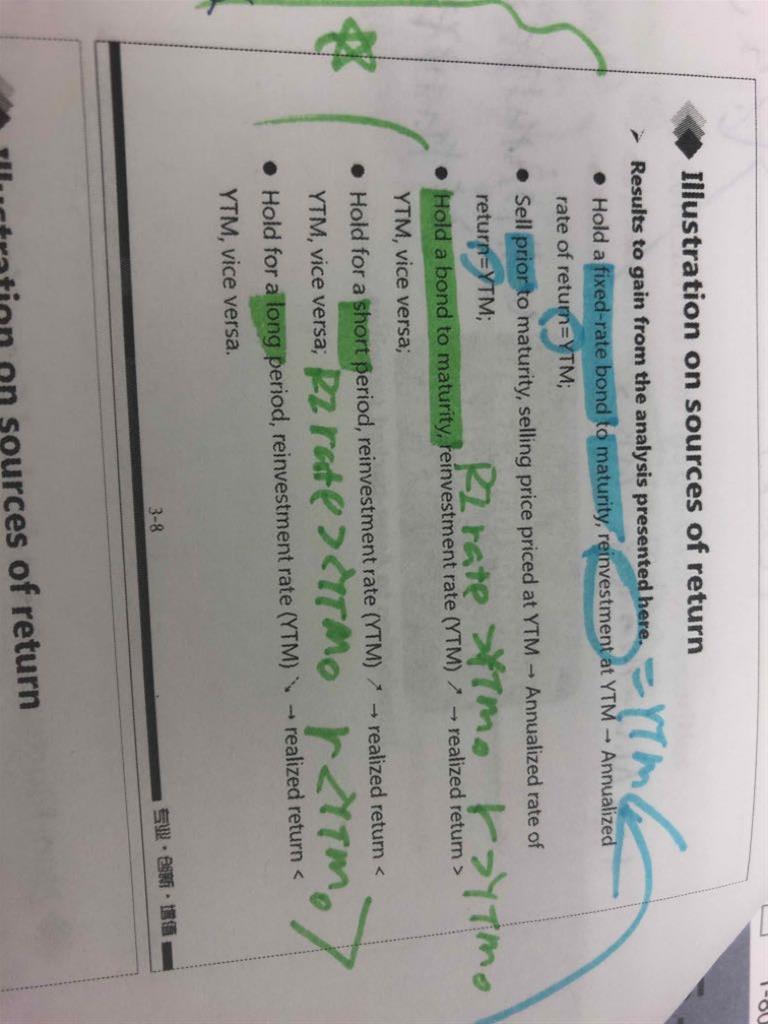 Illustration on sources of return
➢ Results to gain from the analysis presented here. =YTM
● Hold a fixed-rate bond to maturity, reinvestment at YTM → Annualized
rate of return=YTM;
● Sell prior to maturity, selling price priced at YTM → Annualized rate of
return=YTM;
RI rate >YTM₀ r>YTM₀
● Hold a bond to maturity, reinvestment rate (YTM) ↗ → realized return >
YTM, vice versa;
● Hold for a short period, reinvestment rate (YTM) ↗ → realized return <
YTM, vice versa; RI rate> YTM₀ r<YTM₀
● Hold for a long period, reinvestment rate (YTM) ↘ → realized return <
YTM, vice versa.
3-8
专业·创新·增值
Illustration on sources of return